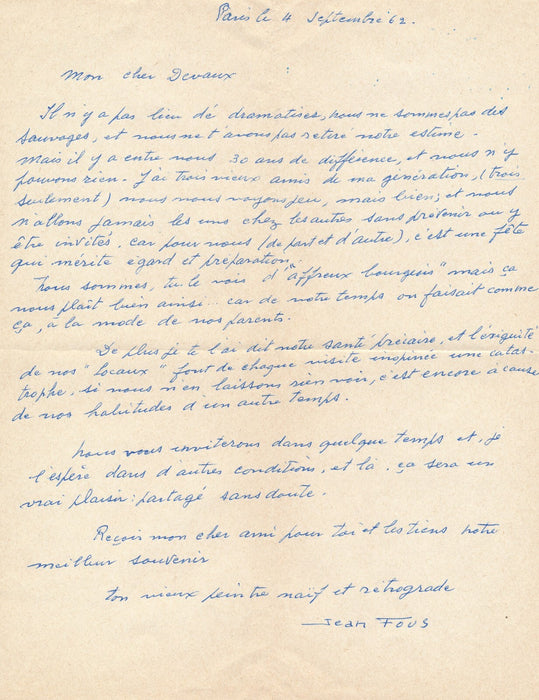 Paris le 4 Septembre 62.
Mon cher Devaux
Il n'y a pas lieu de dramatiser, nous ne sommes pas des
sauvages, et nous ne t'avons pas retiré notre estime.
Mais il y a entre nous 30 ans de différence, et nous n'y
pouvons rien. J'ai trois vieux amis de ma génération, (trois
seulement) nous nous voyons peu, mais bien; et nous
n'allons jamais les uns chez les autres sans prévenir ou y
être invités, car pour nous (de part et d'autre), c'est une fête
qui mérite egard et préparation.
Nous sommes, tu le vois d'"affreux bourgeois" mais ça
nous plaît bien ainsi... car de notre temps on faisait comme
ça, à la mode de nos parents.
De plus je te l'ai dit notre santé précaire, et l'exiguité
de nos "locaux" font de chaque visite inopinée une catas-
trophe, si nous n'en laissons rien voir, c'est encore à cause
de nos habitudes d'un autre temps.
Nous vous inviterons dans quelque temps et, je
l'espère dans d'autres conditions, et là. ça sera un
vrai plaisir: partagé sans doute.
Reçois mon cher ami pour toi et les tiens notre
meilleur souvenir
ton vieux peintre naïf et rétrograde
Jean FOUS